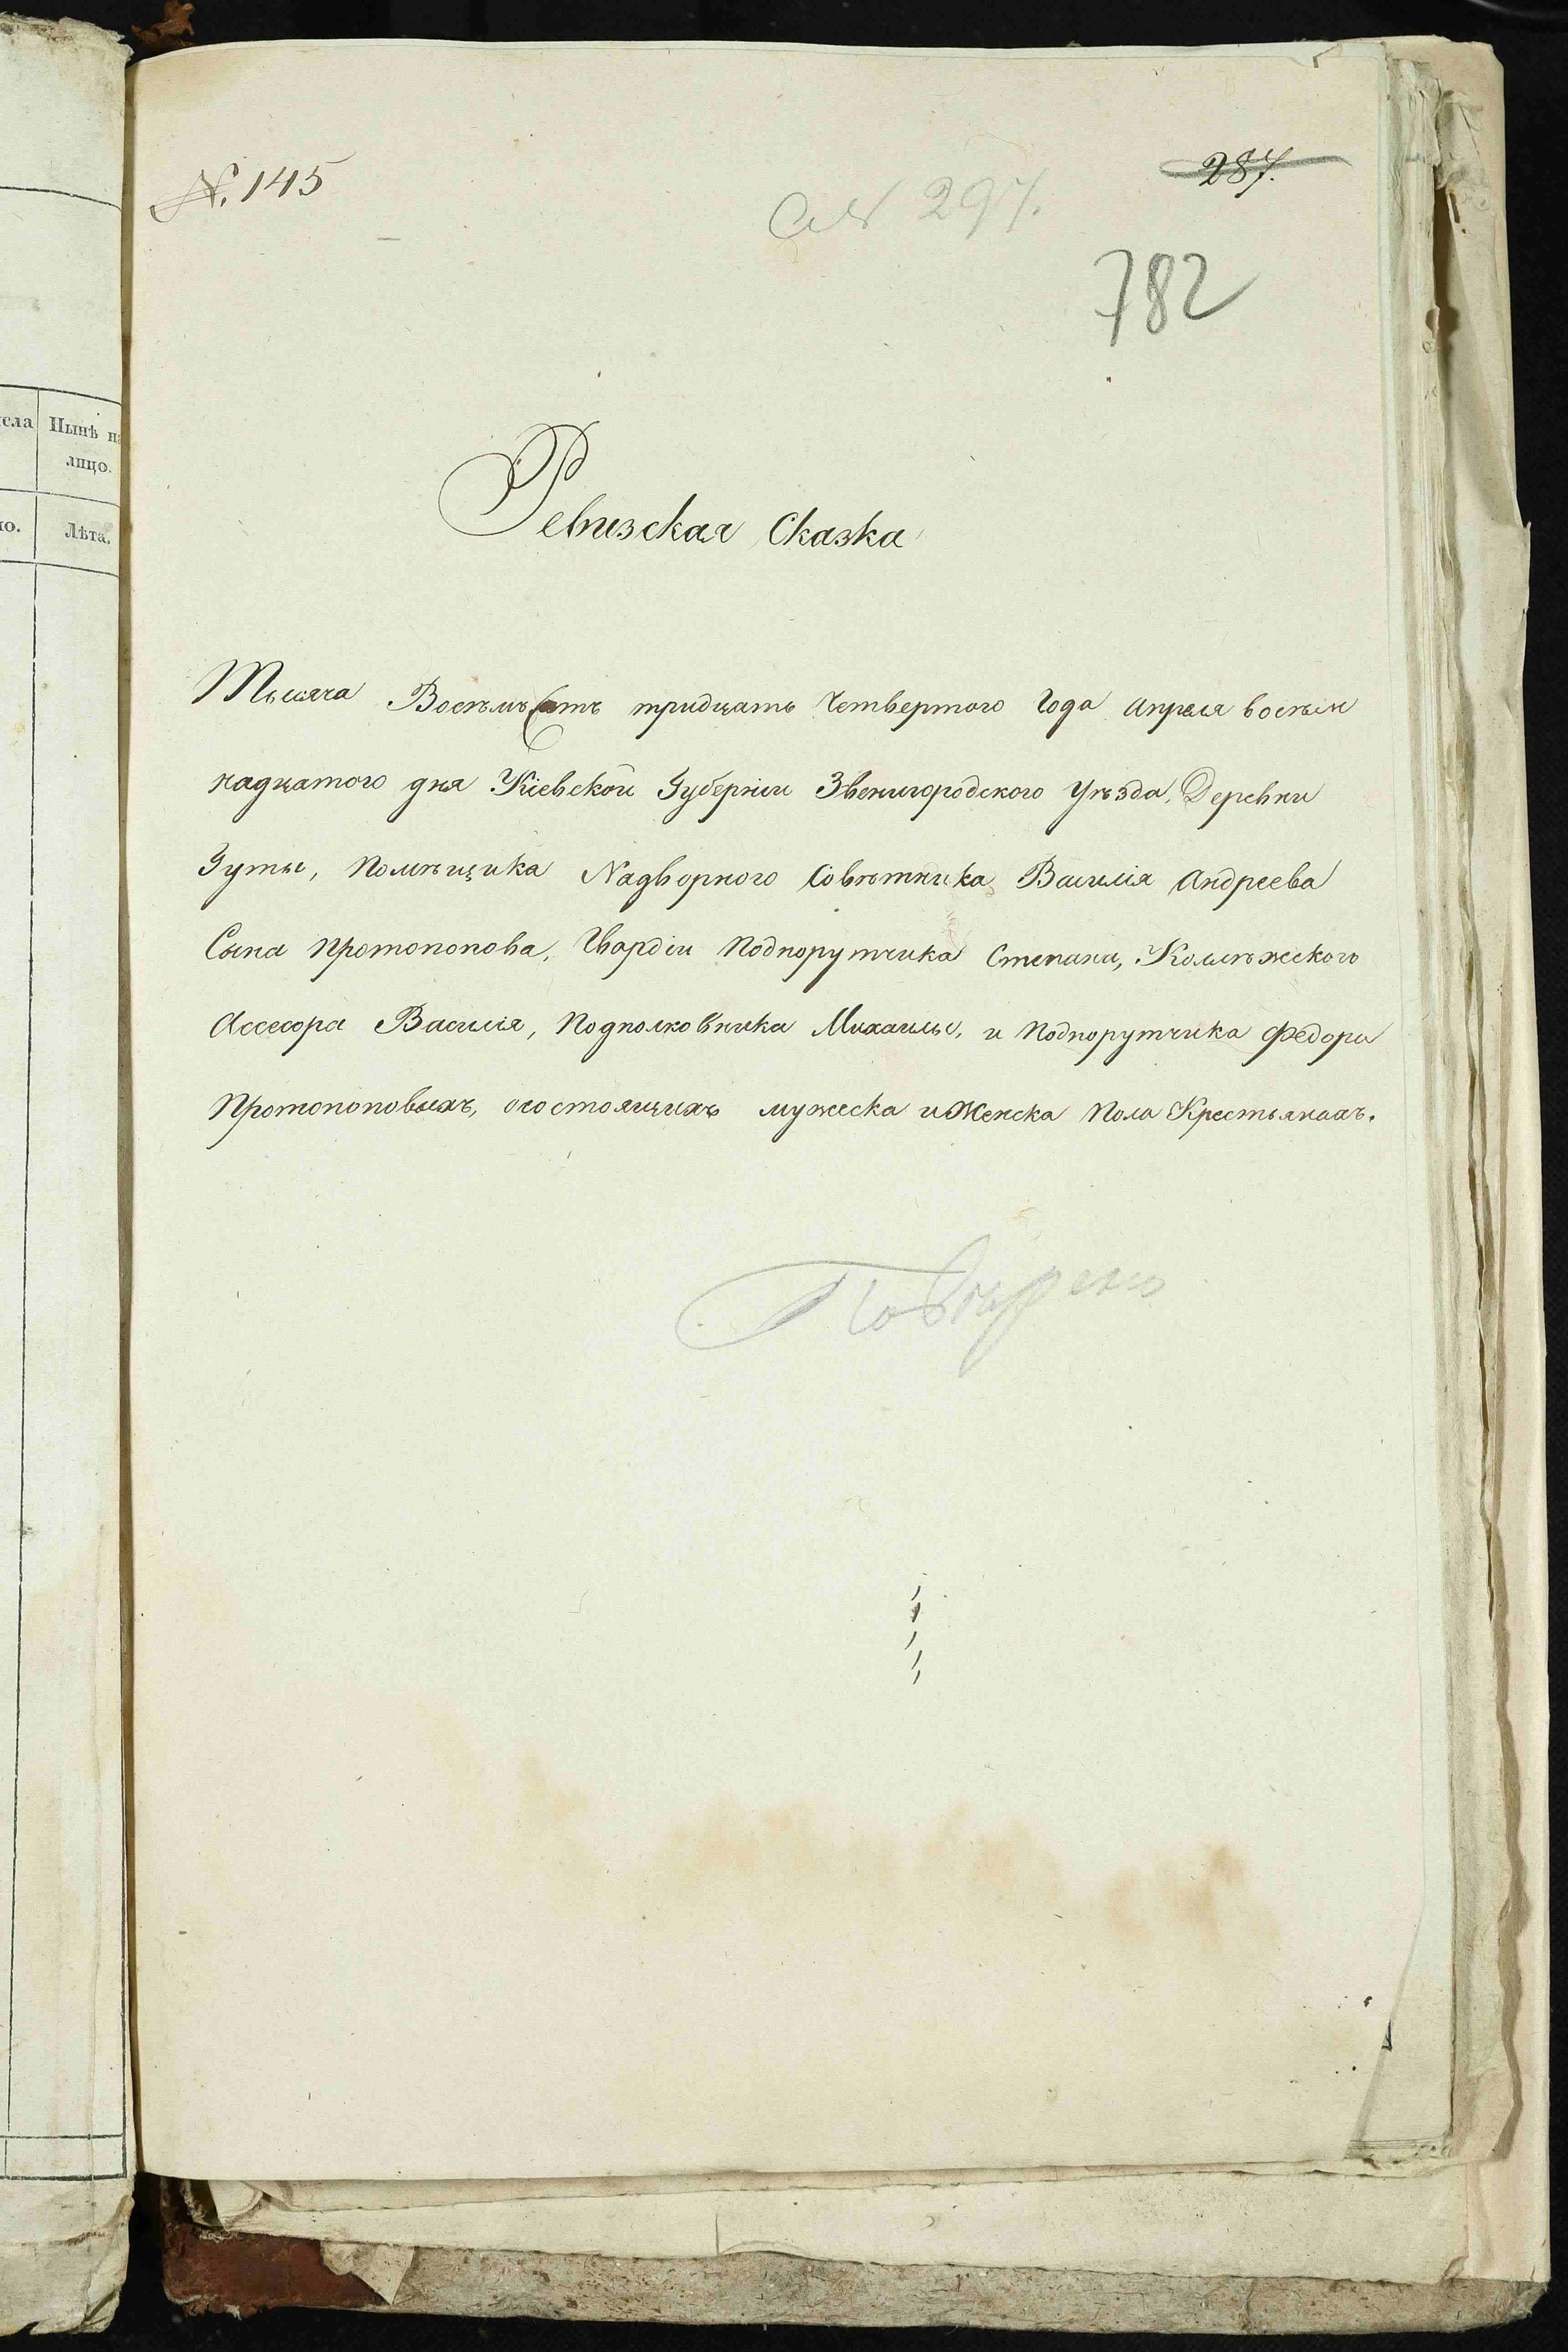 N. 145
287.
297.
782
Ревизская Сказка
Тысяча Восѣмъсотъ тридцать Четвертого Года Апреля восѣм
надцатого дня Кіевской Губерніи Звенигородского Уѣзда, Деревни
Гуты, Помѣщика Надворного Совѣтника Василія Андреева
Сына Протопопова, Гвардіи Подпорутчика Степана, Коллѣжского
Ассесора Василія, Подполковника Михаилы, и Подпорутчика Федора
Протопоповыхъ, осостоящихъ мужеска и Женска Пола Крестьянахъ.
сла
Нынѣ на
лицо.
ло.
Лѣта.